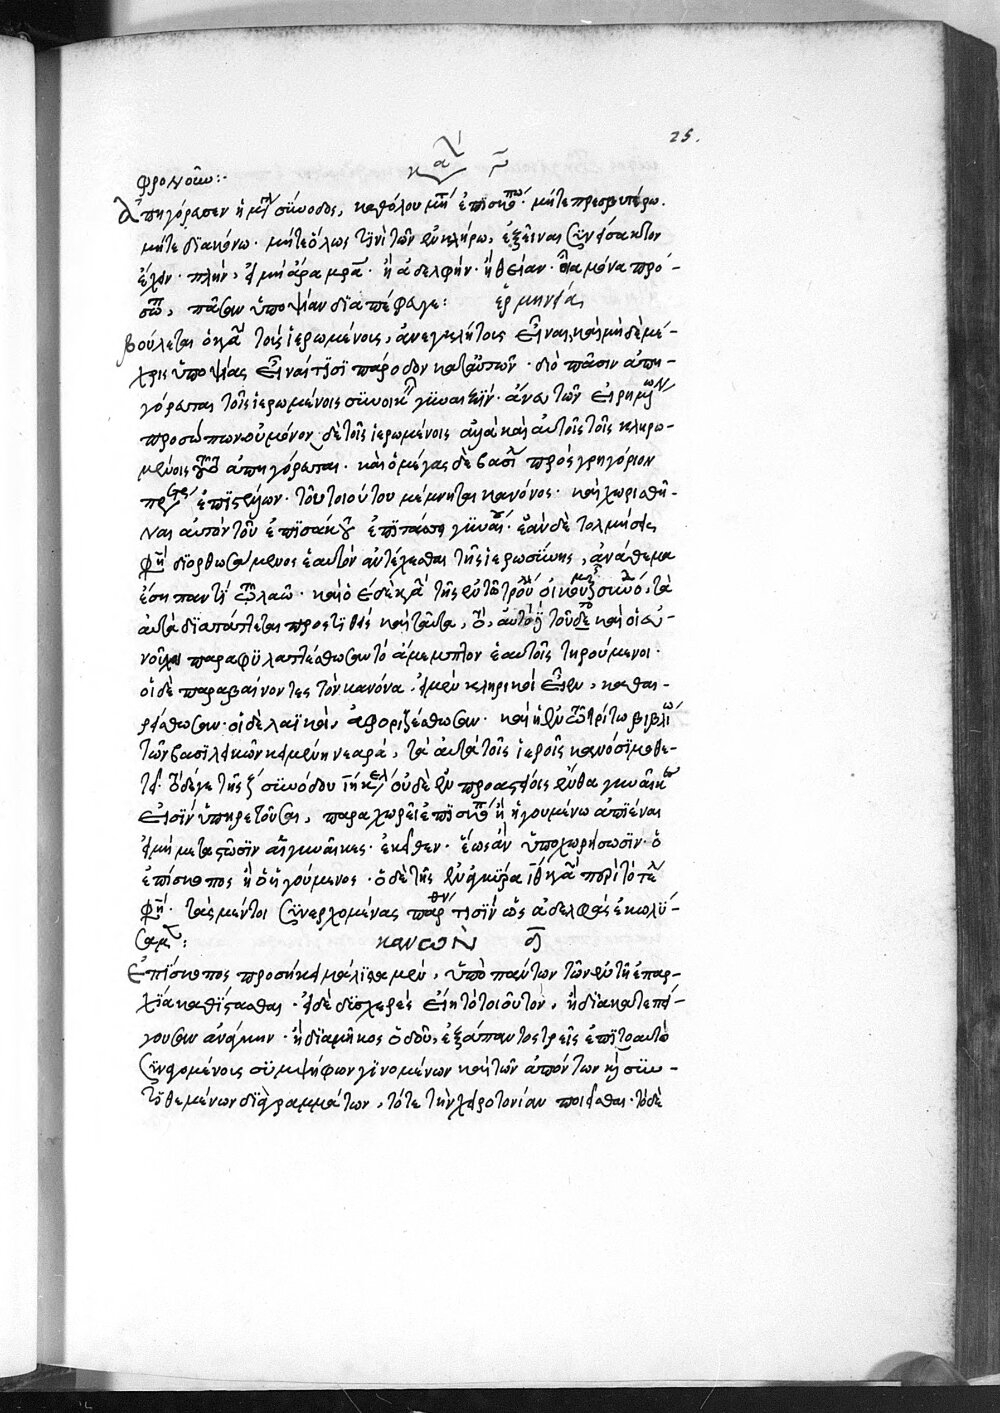 25.
κα γ
φρονοῖω:-
Ἀπηγόρασεν ἡ μεγ σύνοδος, καθόλου μὴτ ἐπισκόπω· μήτε πρεσβυτέρω.
μήτε διακόνω· μήτε ὅλως τινὶ τῶν ἐν κλήρω, ἐξεῖναι συνείσακτον
ἔχειν· πλὴν, εἰ μὴ ἄρα μρα· ἢ ἀδελφὴν· ἢ θείαν· ἃ μόνα πρό-
σωπ, πᾶσαν ὑποψίαν διαπέφευγε: ἑρμηνεία
βούλεται ὁ κα τοὺς ἱερωμένους, ἀνεγκλήτους εἶναι, καὶ μηδὲ μέ-
χρις ὑποψίας εἶναί τισι πάροδον κατ' αὐτῶν· διὸ πᾶσιν ἀπη-
γόρευται τοῖς ἱερωμένοις συνοικ γυναικὶ· ἄνευ τῶν εἰρημων
προσώπων οὐ μόνον δὲ τοῖς ἱερωμένοις ἀλλὰ καὶ αὐτοῖς τοῖς κληρω-
μένοις τοῦτο ἀπηγόρευται· καὶ ὁ μέγας δὲ βασι πρὸς γρηγόριον
πρε ἐπιστέλλων· τοῦ τοιούτου μέμνηται κανόνος· καὶ χωρισθῆ-
ναι αὐτὸν τοῦ ἐπεισάκτου ἐπιτάττει γυναι· ἐὰν δὲ τολμήσεις
φη μὴ διορθωσάμενος ἑαυτὸν ἀντέχεσθαι τῆς ἱερωσύνης, ἀνάθεμα
ἔση παντὶ τῶ λαῶ· καὶ ὁ ε δὲ κα τῆς ἐν τῶ τρούλ οἰκουμ ς συνόδ, τὰ
αὐτὰ διαταττόμενος προστίθησι καὶ ταῦτα, τὸ, αὐτὸ τοῦτο δὲ καὶ οἱ εὐ-
νοῦχοι παραφυλαττέσθωσαν τὸ ἄμεμπτον ἑαυτοῖς τηρούμενοι·
οἱ δὲ παραβαίνοντες τὸν κανόνα· εἰ μὲν κληρικοὶ εἶεν, καθαι-
ρείσθωσαν· οἱ δὲ λαϊκοὶ, ἀφοριζέσθωσαν· καὶ ἡ ἐν τῶ τρίτω βιβλίω
τῶν βασιλικῶν κειμένη νεαρά, τὰ αὐτὰ τοῖς ἱεροῖς κανόσι νομοθε-
τεῖ· ὁ δέ γε τῆς ζ συνόδου ιη κα οὐδὲ ἐν προαστείοις ἔνθα γυναῖκες
εἰσὶν ὑπηρετοῦσαι, παραχωρεῖ ἐπισκόπω ἢ ἡγουμένω ἀπιέναι
εἰ μὴ μεταστῶσιν αἱ γυναῖκες· ἐκεῖθεν· ἕως ἂν ὑποχωρήσωσιν· ὁ
ἐπίσκοπος ἢ ὁ ἡγούμενος· ὁ δὲ τῆς ἐν ἀγκύρα ιθ κα περὶ τὸ τέλ
φη· τὰς μέντοι συνερχομένας παρθν τισὶν ὡς ἀδελφὰς ἐκωλύ-
σαμεν: κανὼν δ
Ἐπίσκοπος προσήκει μάλιστα μὲν, ὑπὸ πάντων τῶν ἐν τῆ ἐπαρ-
χία καθίστασθαι· εἰ δὲ δυσχερὲς εἴη τὸ τοιοῦτον, ἢ διὰ κατεπεί-
γουσαν ἀνάγκην· ἢ διὰ μῆκος ὁδοῦ, ἐξάπαντος τρεῖς ἐπὶ τὸ αὐτὸ
συναγομένους συμψήφων γινομένων καὶ τῶν ἀπόντων καὶ συν-
τιθεμένων διὰ γραμμάτων, τότε τὴν χειροτονίαν ποιεῖσθαι· τὸ δὲ